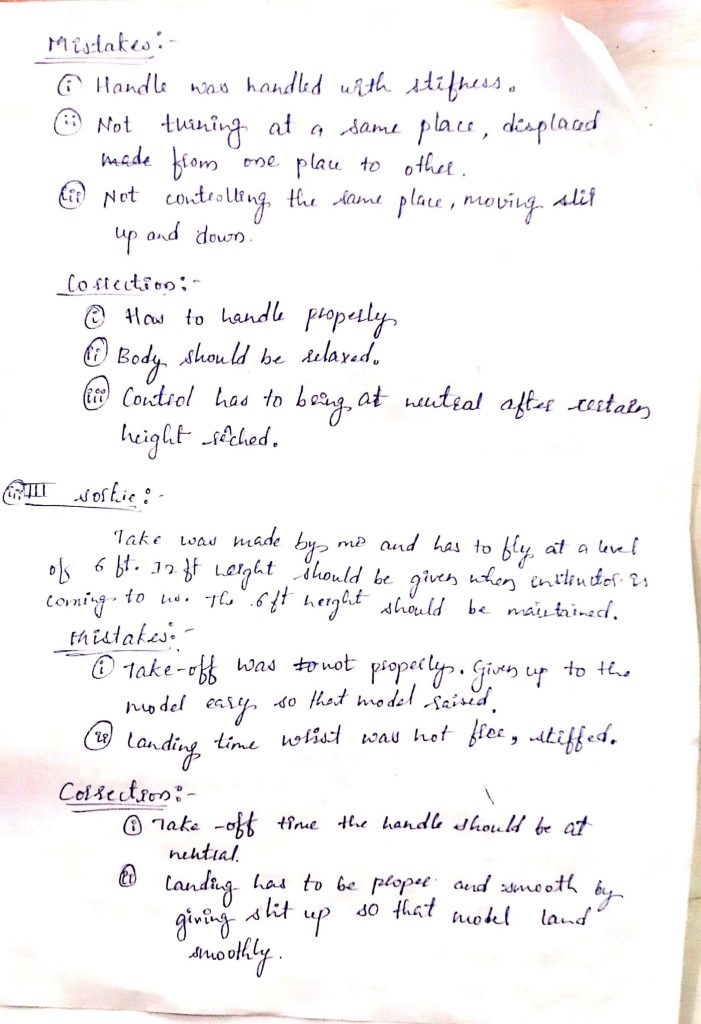 Mistakes:-
(i) Handle was handled with stifness.
(ii) Not turning at a same place, displaced
made from one place to other.
(iii) Not controlling the same place, moving slit
up and down.
Correction:-
(i) How to handle properly
(ii) Body should be relaxed.
(iii) Control has to being at neutral after certain
height reched.
III sortie:-
Take was made by me and has to fly at a level
of 6 ft. 12 ft height should be given when instructor is
coming to us. The 6 ft height should be maintained.
Mistakes:-
(i) Take-off was not properly. Given up to the
model easy so that model raised.
(ii) Landing time wrist was not free, stiffed.
Correction:-
(i) Take-off time the handle should be at
neutral.
(ii) Landing has to be proper and smooth by
giving slit up so that model land
smoothly.